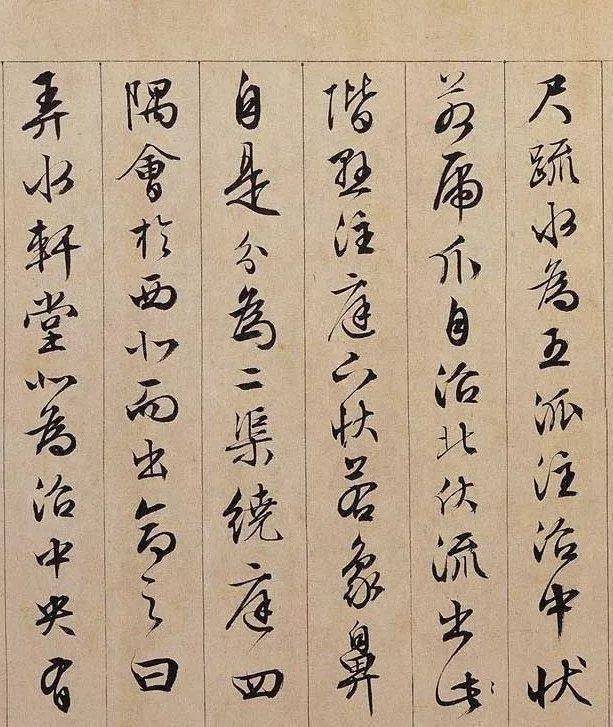 尺疏水為五派注沼中狀
若虎爪自沼北伏流出北
階懸注庭下狀若象鼻
自是分為二渠繞庭四
隅會於西北而出命之曰
弄水軒堂北為沼中央有